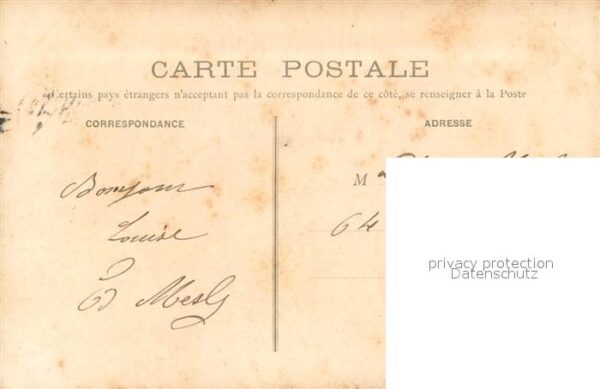 CARTE POSTALE
Certains pays étrangers n'acceptant pas la correspondance de ce côté, se renseigner à la Poste
CORRESPONDANCE
ADRESSE
Bonjour
Louise
M
64
privacy protection
Datenschutz